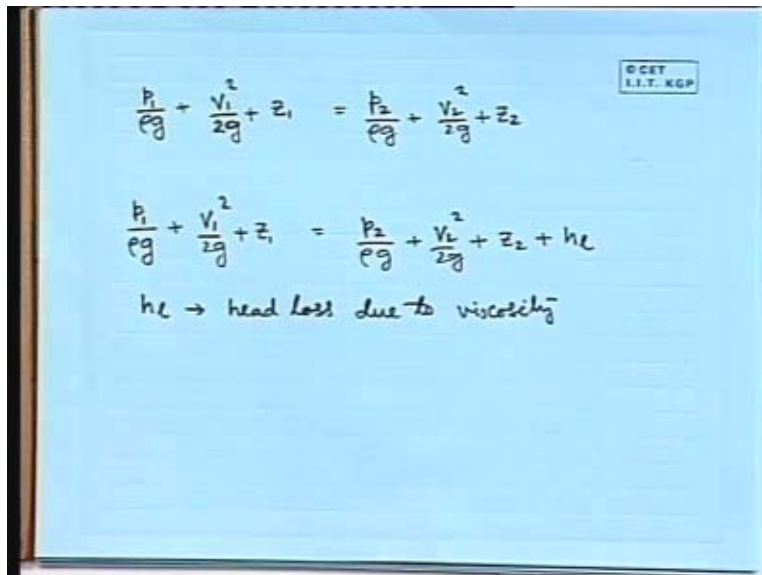 © CET
I.I.T. KGP
p₁/ρg + V₁²/2g + z₁ = p₂/ρg + V₂²/2g + z₂
p₁/ρg + V₁²/2g + z₁ = p₂/ρg + V₂²/2g + z₂ + hℓ
hℓ → head loss due to viscosity